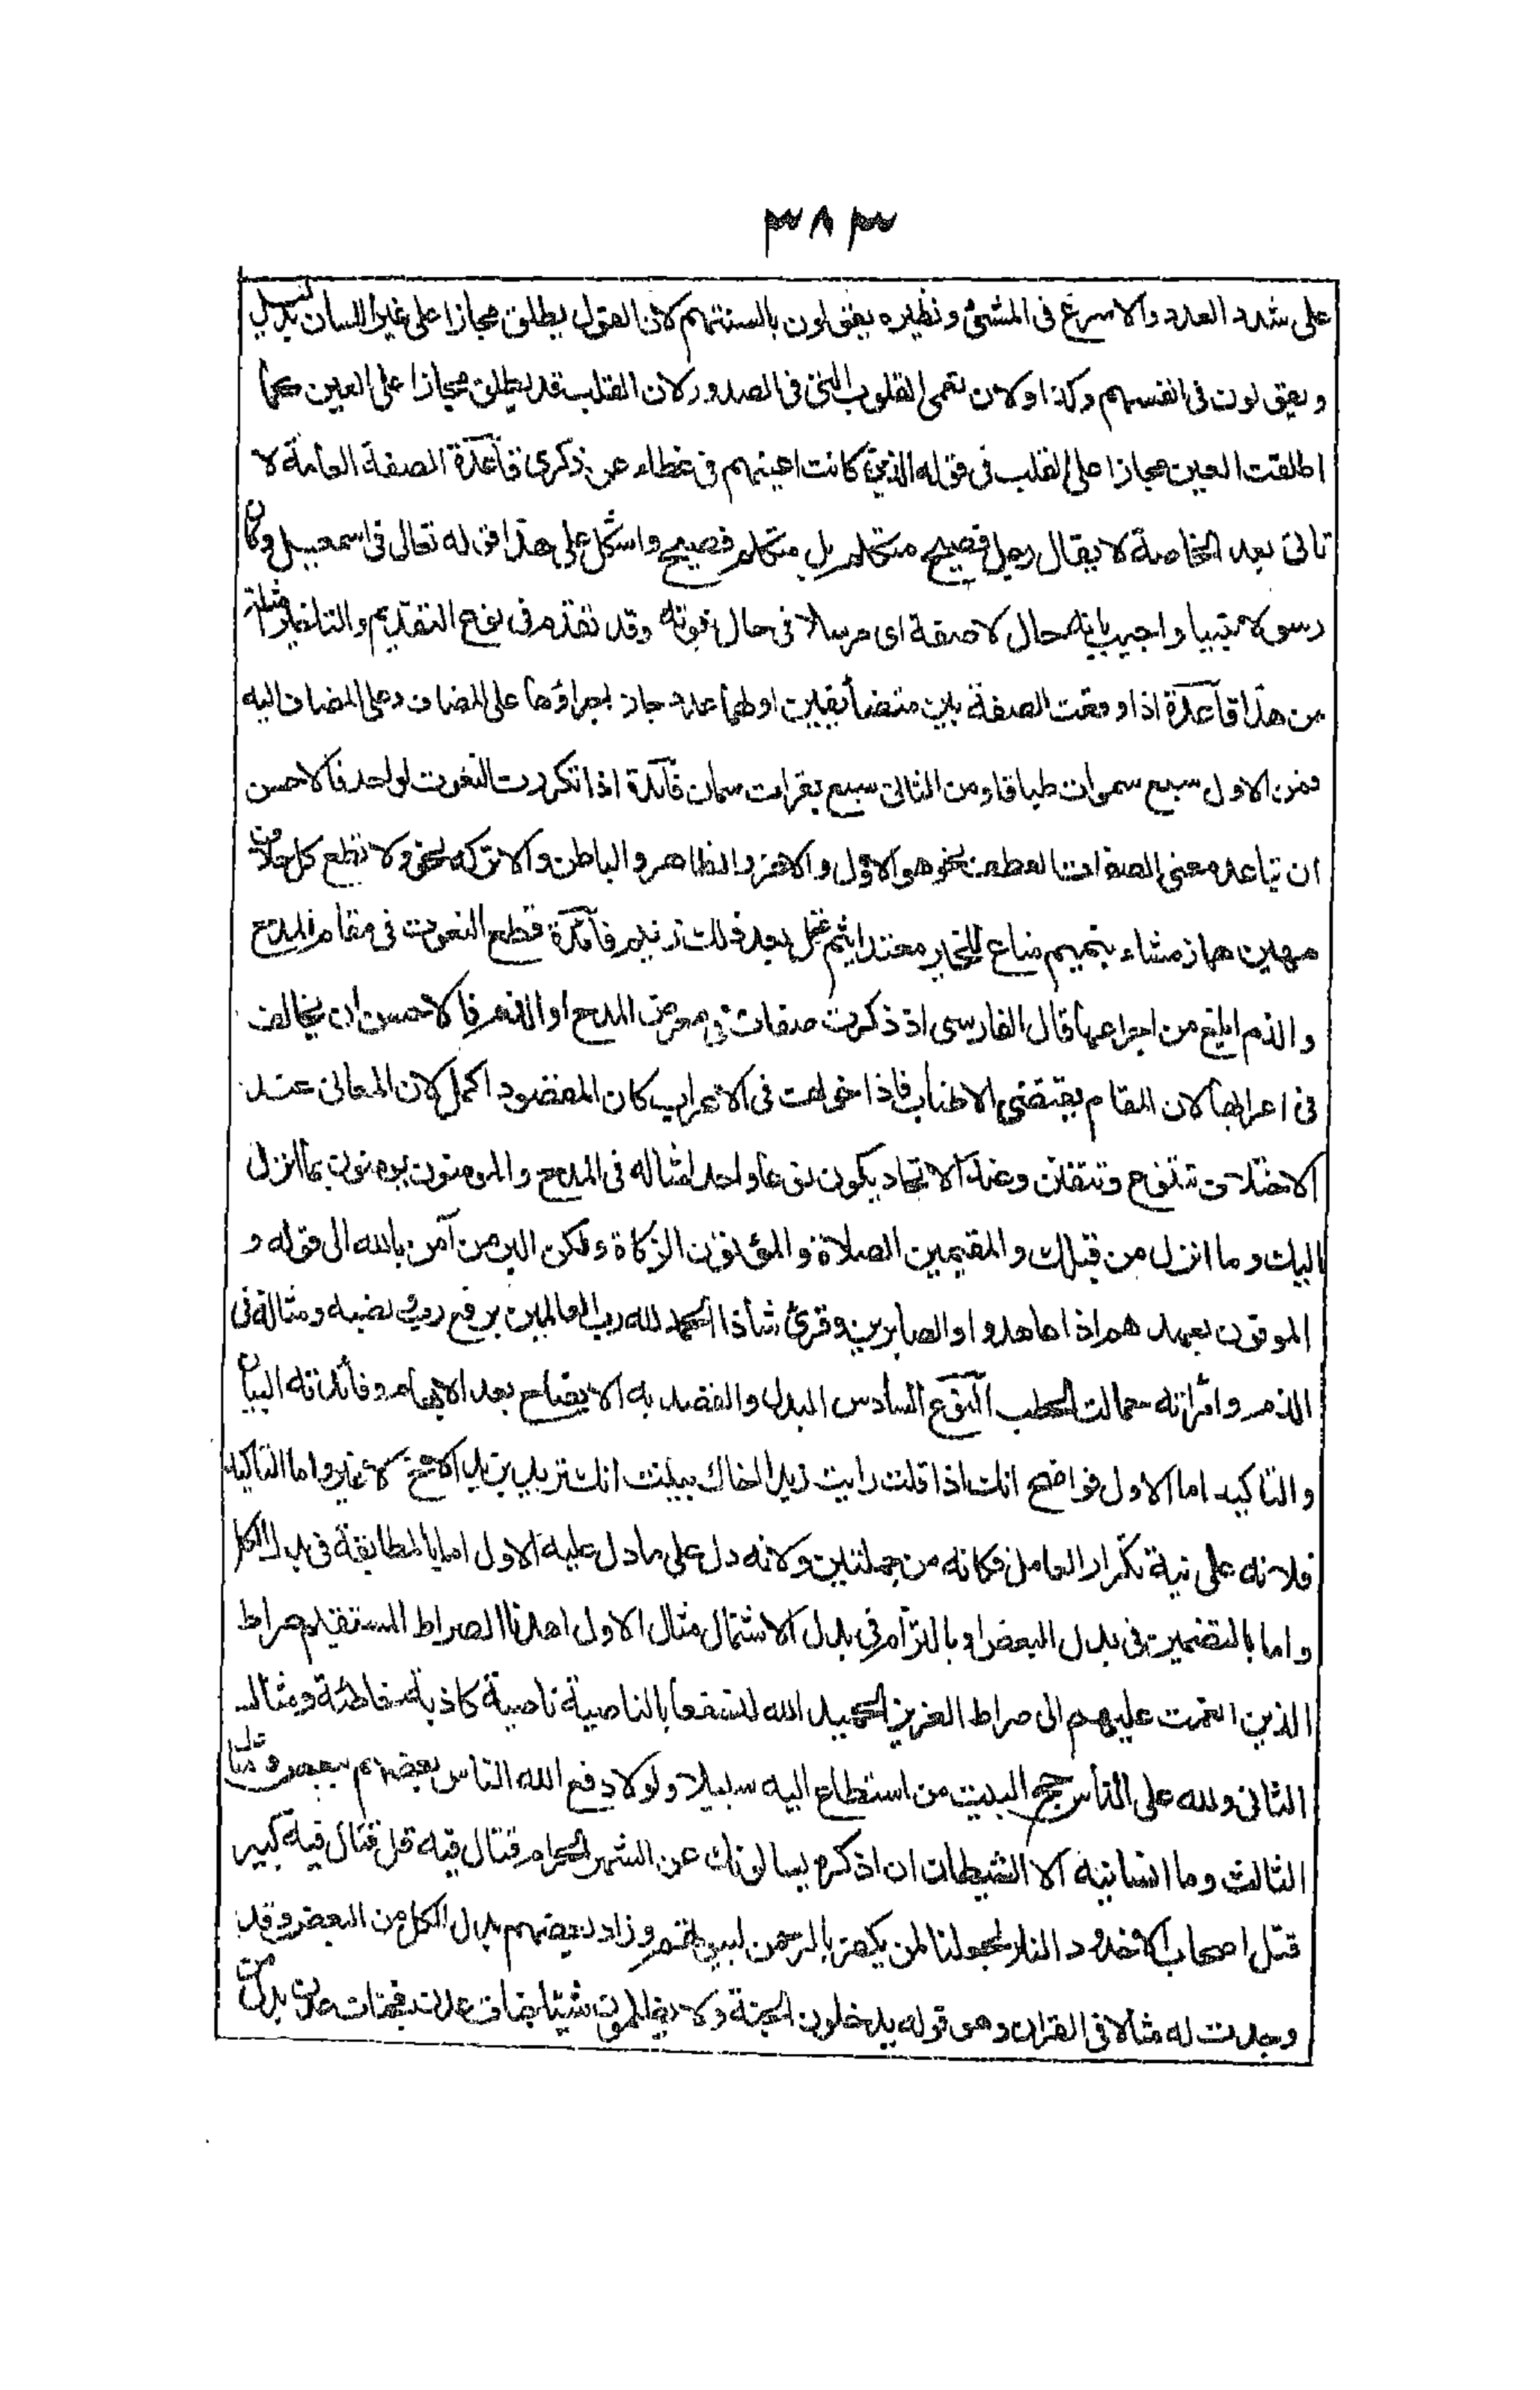 ٣٨٣
على شدد العدد والاسرع فى المشى ونظيره يقولون بالسنتهم لان القول يطلق مجازا على غير اللسان بدليل
ويقولون فى انفسهم وكذا ولكن تعمى القلوب التى فى الصدور لان القلب قد يطلق مجازا على العين كما
اطلقت العين مجازا على القلب فى قوله الذين كانت اعينهم فى غطاء عن ذكرى قاعدة الصفة العامة لا
تاتى بعد الخاصة لا يقال رجل فصيح متكلم بل متكلم فصيح واشكل على هذا قوله تعالى فى اسمعيل وكان
رسولا نبيا واجيب بانه حال لا صفة اى مرسلا فى حال نبوته وقد تقدم فى نوع التقديم والتاخير امثلة
من هذا قاعدة اذا وقعت الصفة بين متضائفين اولهما عدد جاز اجراؤها على المضاف وعلى المضاف اليه
فمن الاول سبع سموات طباقا ومن الثانى سبع بقرات سمان فائدة اذا تكررت النعوت لواحد فالاحسن
ان تباعد معنى الصفات العطف نحو هو الاول والاخر والظاهر والباطن والا تركه نحو ولا تطع كل حلاف
مهين هماز مشاء بنميم مناع للخير معتد اثيم عتل بعد ذلك زنيم فائدة قطع النعوت فى مقام المدح
والذم ابلغ من اجراءها قال الفارسى اذ ذكرت صفات فى معرض المدح او الذم فالاحسن ان يخالف
فى اعرابها لان المقام يقتضى الاطناب فاذا خولفت فى الاعراب كان المقصود اكمل لان المعانى عند
الاختلاف تتنوع وتتفنن وعند الاتحاد يكون نوعا واحدا مثاله فى المدح والمومنون يومنون بما انزل
اليك وما انزل من قبلك والمقيمين الصلاة والمؤتون الزكاة ولكن البر من آمن بالله الى قوله و
الموفون بعهدهم اذا عاهدوا والصابرين وقرئ شاذا الحمد لله رب العالمين برفع رب ونصبه ومثاله فى
الذم وامرأته حمالت الحطب النوع السادس البدل والقصد به الايضاح بعد الابهام وفائدته البيان
والتاكيد اما الاول فواضح انك اذا قلت رايت زيدا اخاك بينت انك تريد بزيد الاخ لا غير واما التاكيد
فلانه على نية تكرار العامل فكانه من جملتين ولانه دل على ما دل عليه الاول اما بالمطابقة فى بدل الكل
واما بالتضمين فى بدل البعض او بالتزام فى بدل الاشتمال مثال الاول اهدنا الصراط المستقيم صراط
الذين انعمت عليهم الى صراط العزيز الحميد الله لنسفعا بالناصية ناصية كاذبة خاطئة ومثال
الثانى ولله على الناس حج البيت من استطاع اليه سبيلا ولولا دفع الله الناس بعضهم ببعض ومثال
الثالث وما انسانيه الا الشيطان ان اذكره يسالونك عن الشهر الحرام قتال فيه قل قتال فيه كبير
قتل اصحاب الاخدود النار لجعلنا لمن يكفر بالرحمن لبيوتهم وزاد بعضهم بدل الكل من البعض وقد
وجدت له مثالا فى القران وهو قوله يدخلون الجنة ولا يظلمون شيئا جنات عدن فجنات عدن بدل من